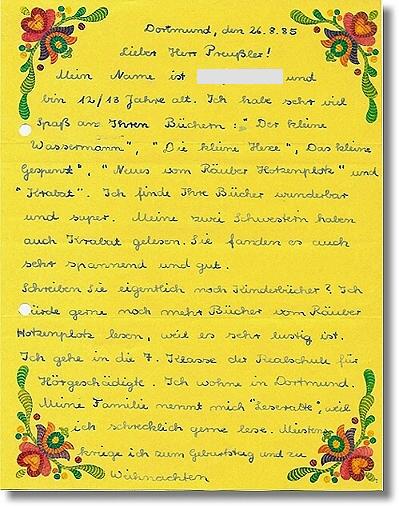 Dortmund, den 26.8.85
Lieber Herr Preußler!
Mein Name ist und
bin 12/13 Jahre alt. Ich habe sehr viel
Spaß an Ihren Büchern: "Der kleine
Wassermann", "Die kleine Hexe", Das kleine
Gespenst", "Neues vom Räuber Hotzenplotz" und
"Krabat". Ich finde Ihre Bücher wunderbar
und super. Meine zwei Schwestern haben
auch Krabat gelesen. Sie fanden es auch
sehr spannend und gut.
Schreiben Sie eigentlich noch Kinderbücher? Ich
würde gerne noch mehr Bücher vom Räuber
Hotzenplotz lesen, weil es sehr lustig ist.
Ich gehe in die 7. Klasse der Realschule für
Hörgeschädigte. Ich wohne in Dortmund.
Meine Familie nennt mich "Leseratte", weil
ich schrecklich gerne lese. Meistens
kriege ich zum Geburtstag und zu
Weihnachten